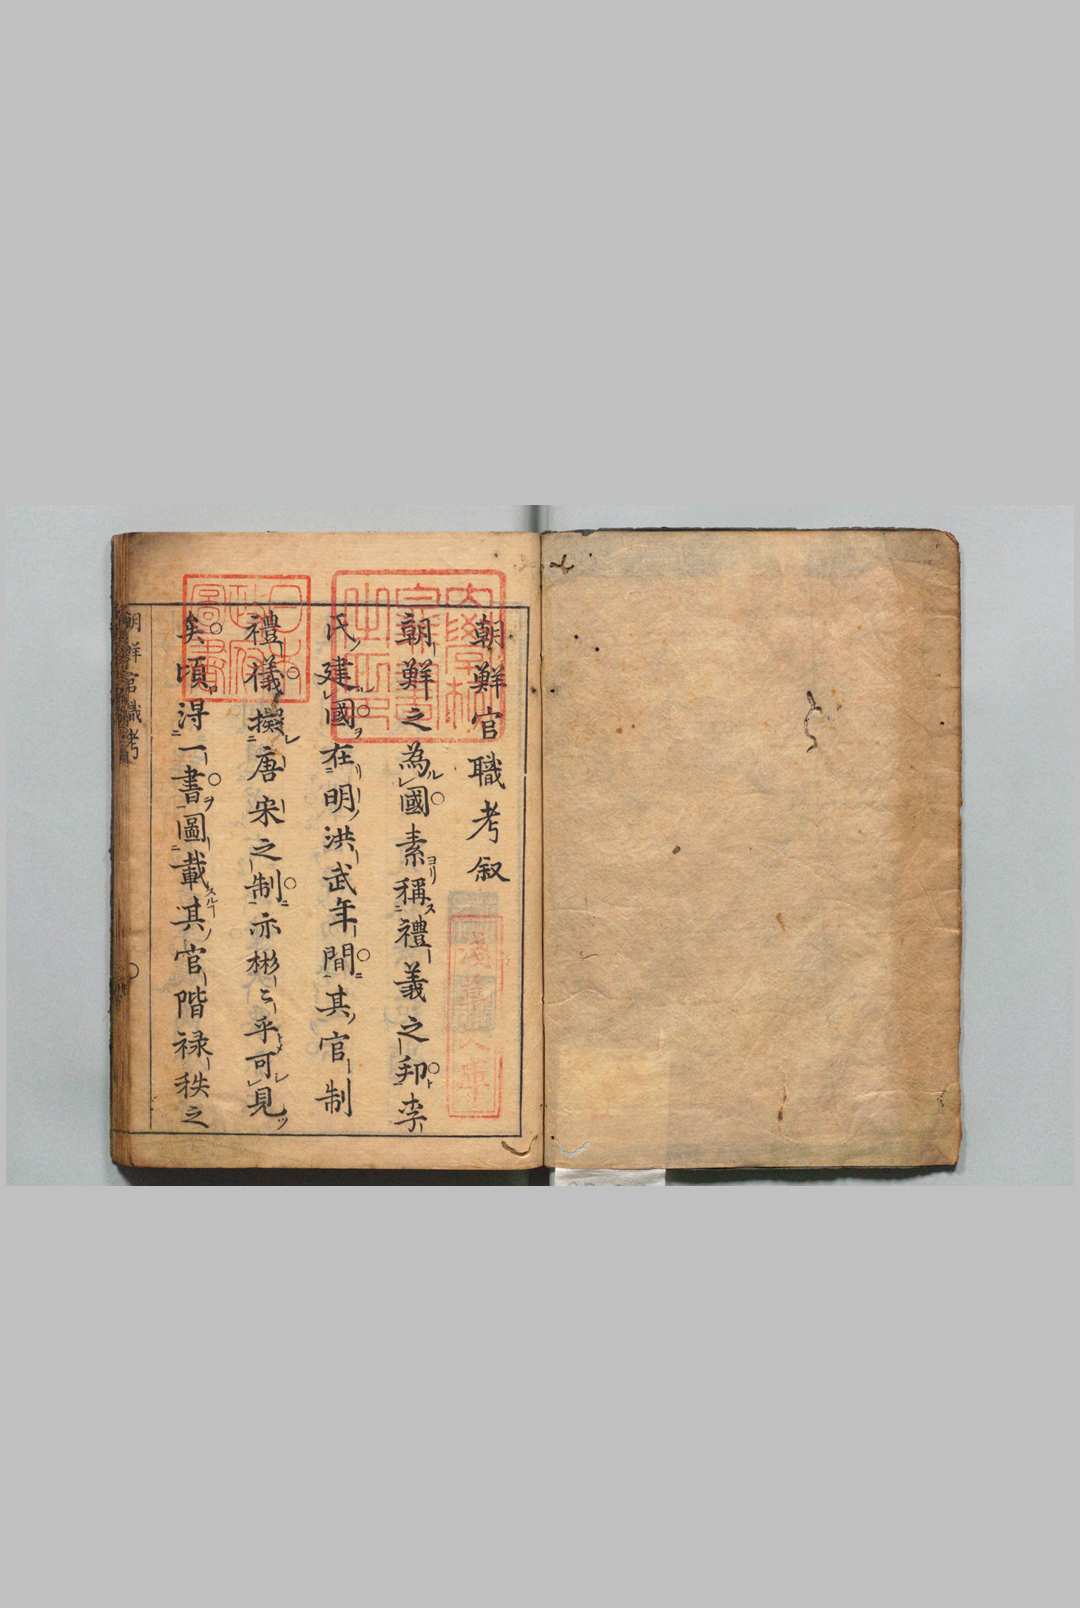 朝鮮官職考叙
朝鮮之為國素稱禮義之邦李
氏建國在明洪武年間其官制
禮儀擬唐宋之制亦彬〻乎可見
矣頃得一書圖載其官階禄秩之
朝鮮官職考
日本
政府
圖書
淺草文庫